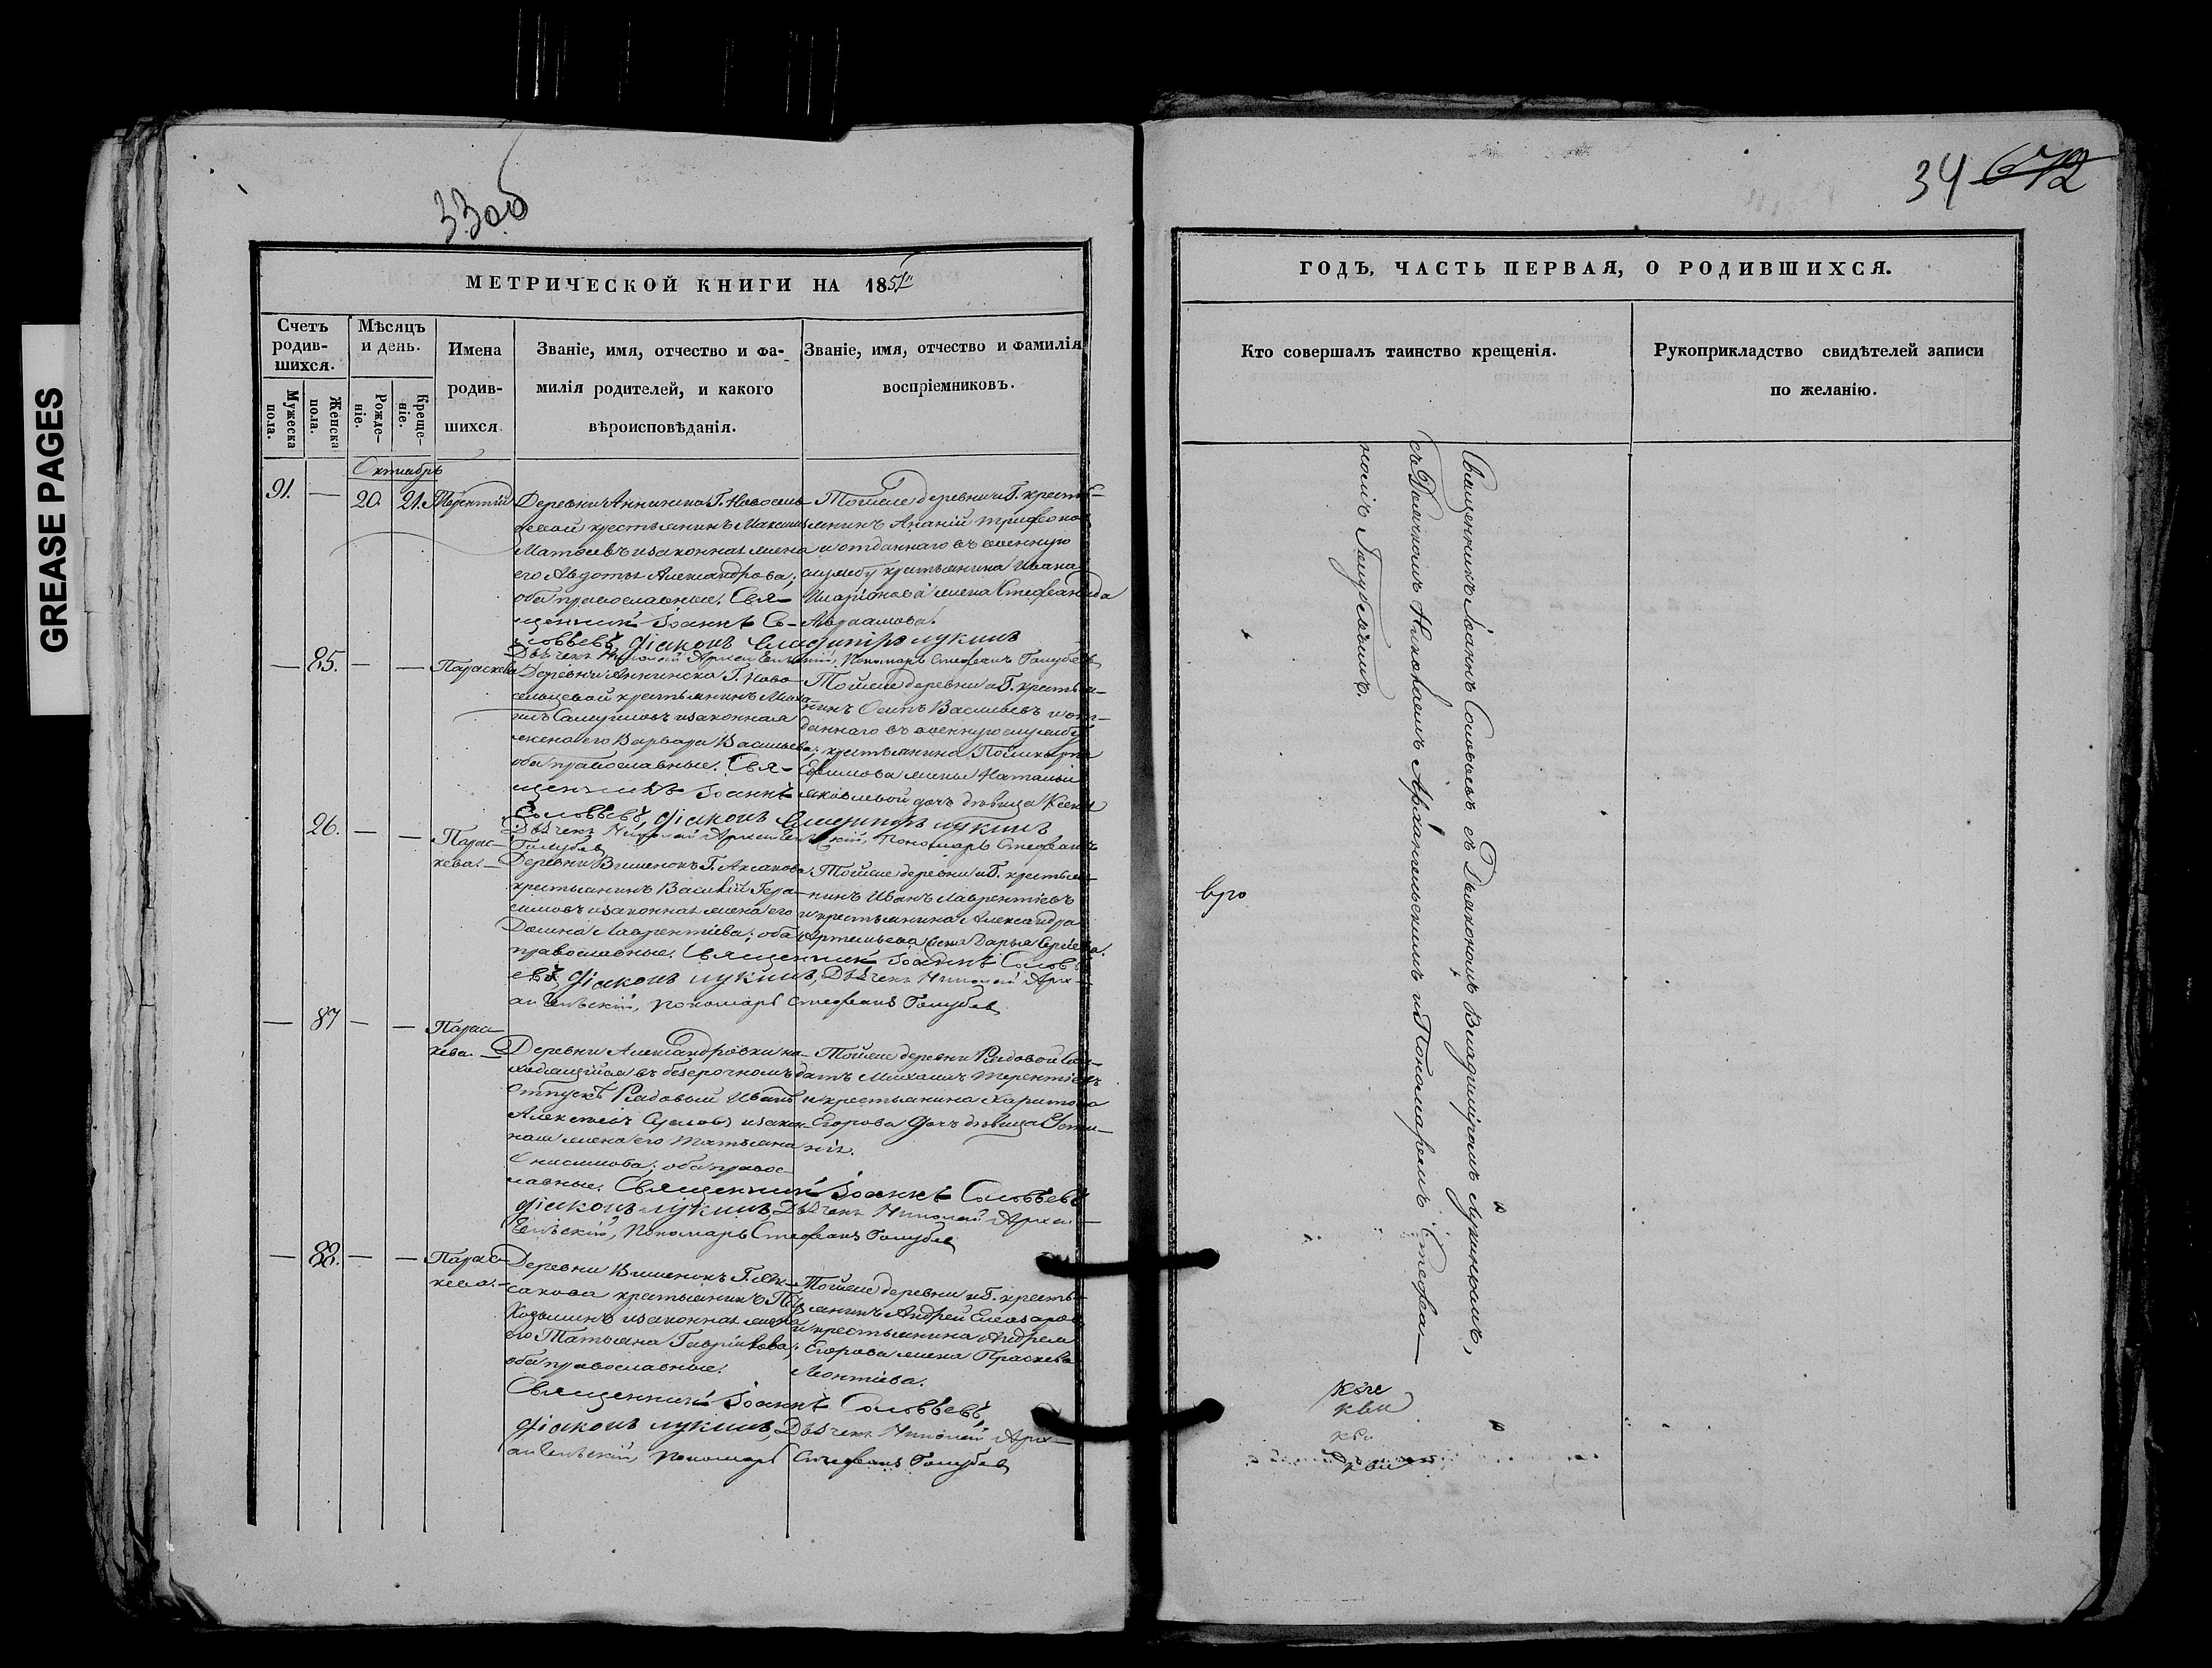 GREASE PAGES
33 об
МЕТРИЧЕСКОЙ КНИГИ НА 1851
Счетъ родив-шихся.
Мужеска пола.
Женска пола.
Мѣсяцъ и день.
Рожде-ніе.
Креще-ніе.
Имена
родив-
шихся.
Званіе, имя, отчество и фа-
милія родителей, и какого
вѣроисповѣданія.
Званіе, имя, отчество и фамилія
воспріемниковъ.
Октябрь
91. — 20. 21. Терентій
Деревни Аннинска Г. Новосиль-
цевой крестьянинъ Максимъ
Матѳеевъ и законная жена
его Авдотья Александрова;
оба православные. Свя-
щенникъ Іоаннъ Со-
ловьевъ, Діаконъ Владиміръ Лукинъ
Дьячекъ Николай Архангельскій, Пономарь Стефанъ Голубев
Тойже деревни и Г. крестья-
нинъ Ананій Трифонов
и отданнаго въ военную
службу крестьянина Ивана
Иларіонова жена Стефанида
Авраамова.
— 85. — — Параскева
Деревни Аннинска Г. Ново-
сельцевой крестьянинъ Миха-
илъ Самуиловъ и законная
жена его Варвара Васильева;
оба православные. Свя-
щенникъ Іоаннъ
Соловьевъ, Діаконъ Владиміръ Лукинъ
Дьячекъ Николай Архангельскій, Пономарь Стефанъ
Голубев
Тойже деревни и Г. крестья-
нинъ Осипъ Васильевъ и от-
даннаго въ военную службу
крестьянина Поликарпа
Ефимова жены Натальи
Яковлевой дочь дѣвица Ксенія
26. — — Парас-
кева. —
Деревни Вишенокъ Г. Аксакова
крестьянинъ Василій Гера-
симовъ и законная жена его
Домна Лаврентіева; оба
православные. Священникъ Іоаннъ Соловь
евъ, Діаконъ Лукинъ, Дьячекъ Николай Арх-
ангельскій, Пономарь Стефанъ Голубев
Тойже деревни и Г. крестья-
нинъ Иванъ Лаврентіевъ
и крестьянина Александра
Артемьева жена Дарья Сергіева.
— 87 — — Парас-
кева. —
Деревни Александровки на-
ходящійся въ безсрочномъ
отпускѣ Рядовый Иванъ
Алексѣевъ и закон-
ная жена его Татьяна
Онисимова; оба правос-
лавные. Священникъ Іоаннъ Соловьевъ
Діаконъ Лукинъ, Дьячекъ Николай Архан-
гельскій, Пономарь Стефанъ Голубев
Тойже деревни Рядовой Сол-
датъ Михаилъ Терентіевъ
и крестьянина Харитона
Егорова дочь дѣвица Евги-
нія.
— 88. — — Парас-
кева. —
Деревни Вишенокъ Г. Ак-
сакова крестьянинъ Петръ
Козьминъ и законная жена
его Татьяна Гавріилова;
оба православные.
Священникъ Іоаннъ Соловьевъ,
Діаконъ Лукинъ, Дьячекъ Николай Арх-
ангельскій, Пономарь Стефанъ Голубев
Тойже деревни и Г. кресть-
янинъ Андрей Елеазаров
и крестьянина Андрея
Егорова жена Праскева
Леонтіева.
34 672
ГОДЪ, ЧАСТЬ ПЕРВАЯ, О РОДИВШИХСЯ.
Кто совершалъ таинство крещенія.
Рукоприкладство свидѣтелей записи
по желанію.
Священникъ Іоаннъ Соловьевъ съ Діакономъ Владиміромъ Лукинымъ,
съ Дьячкомъ Николаемъ Архангельскимъ и Пономаремъ Стефа-
номъ Голубевымъ.